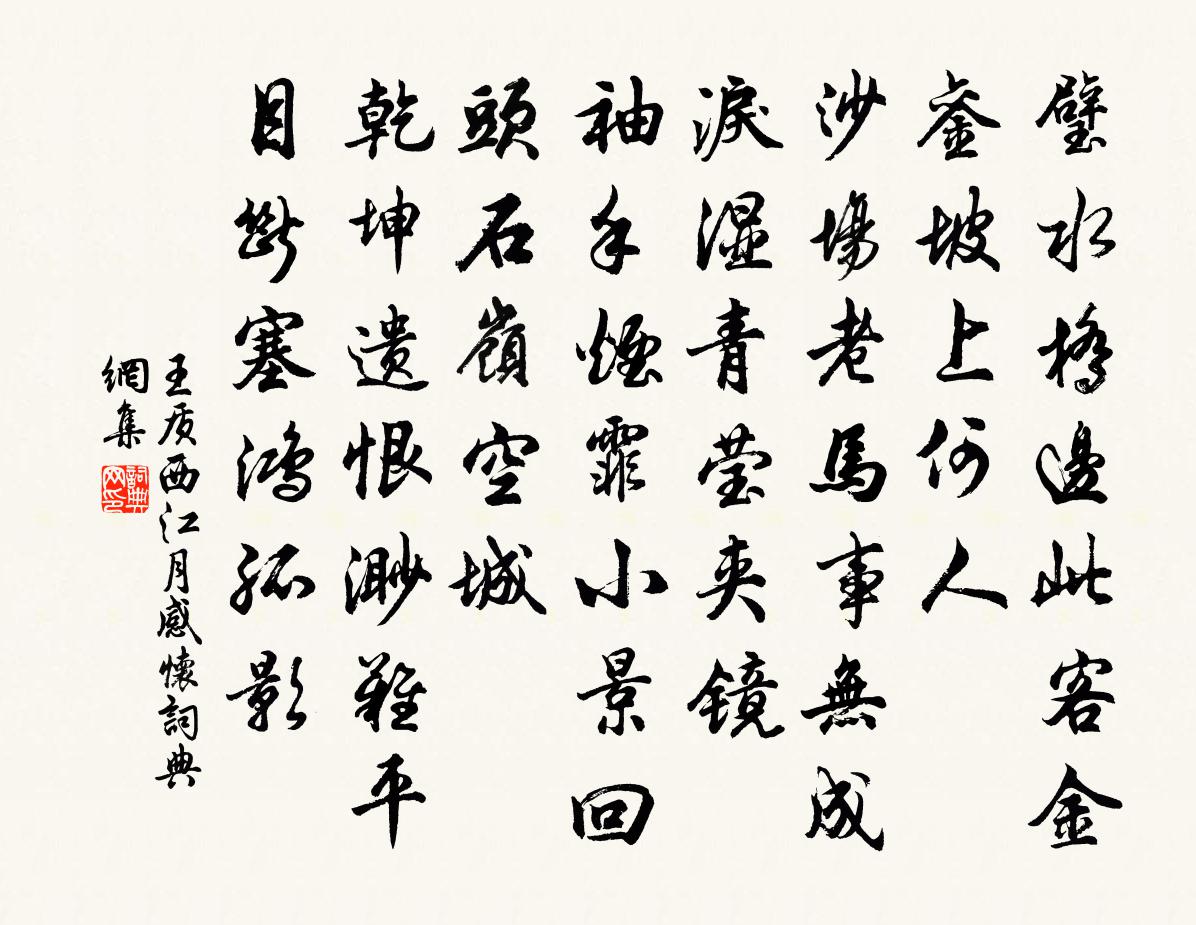 璧水橋邊此客金
銮坡上何人
沙場老馬事無成
淚湿青莹夹镜
袖手煙霏小景回
頭石嶺空城
乾坤遗恨渺難平
目斷塞鴻孤影
王质西江月感懷詞典
網集
詞典
网印